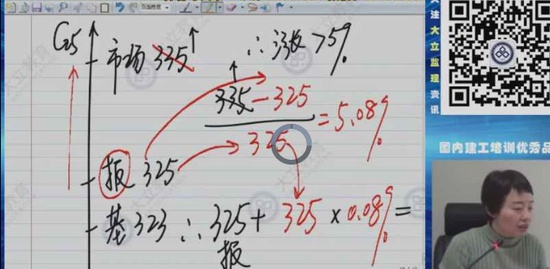 C25
市场 335
∴ 涨孩 >5%
335 - 325
325
= 5.08%
报 325
基 323 ∴ 325 + 325 × 0.08% =
报
关注大立监理资讯
国内建工培训优秀品